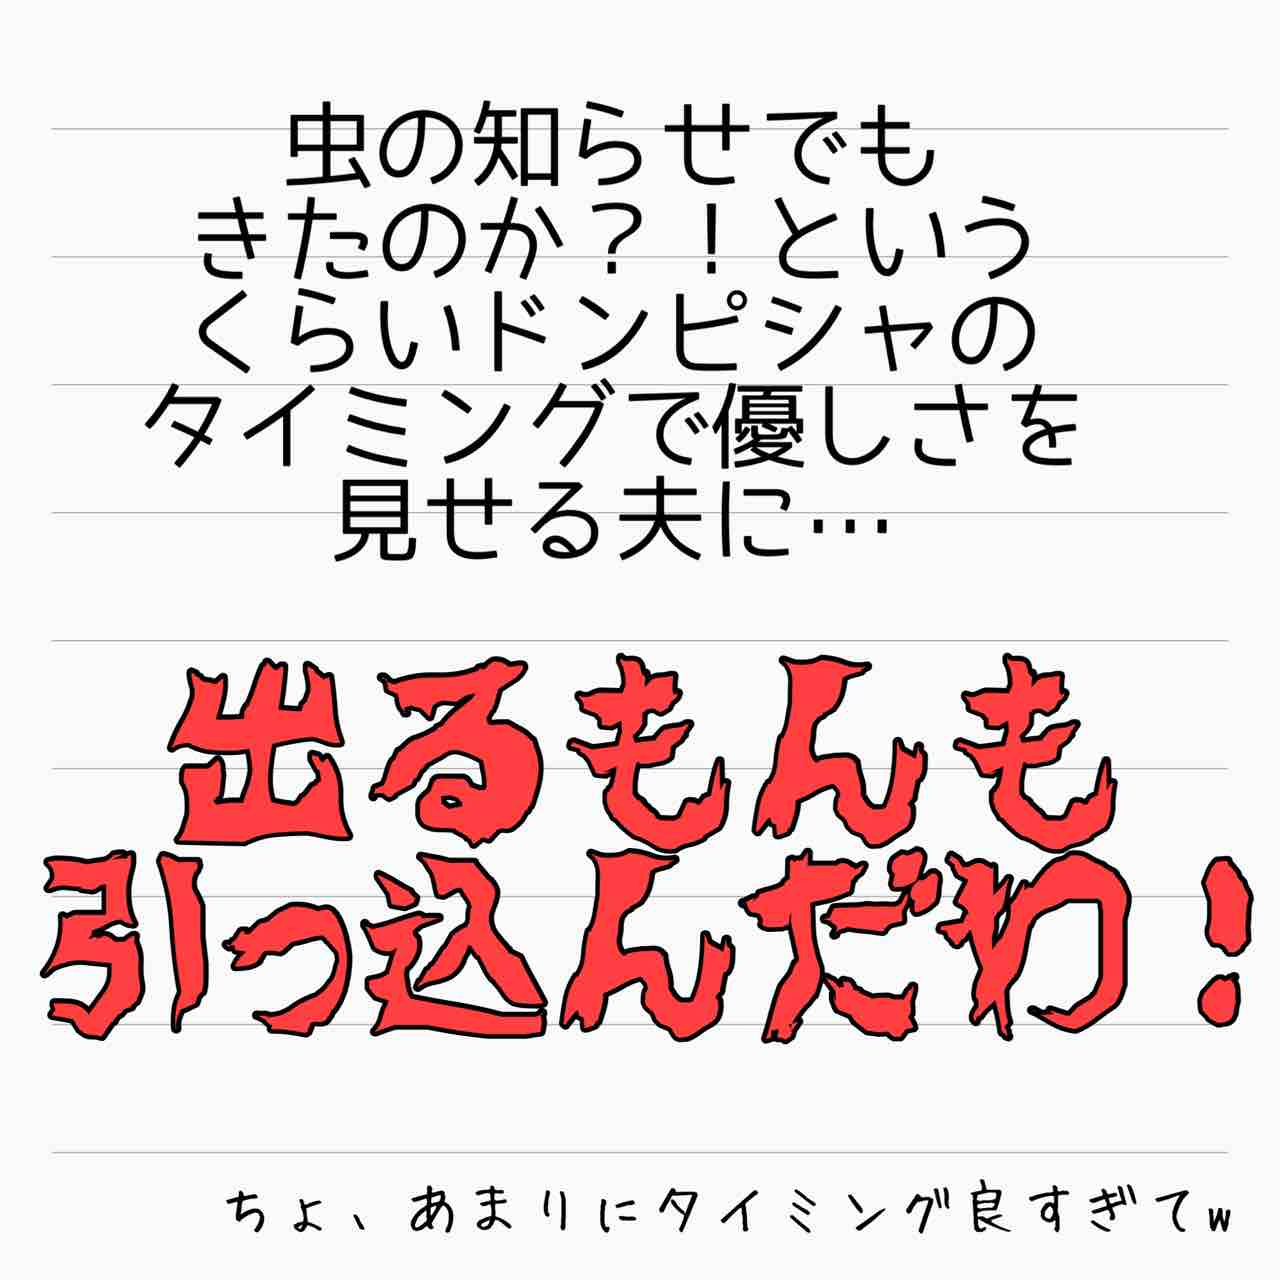 虫の知らせでも
きたのか？！という
くらいドンピシャの
タイミングで優しさを
見せる夫に…
出るもんも
引っ込んだわ！
ちょ、あまりにタイミング良すぎてw